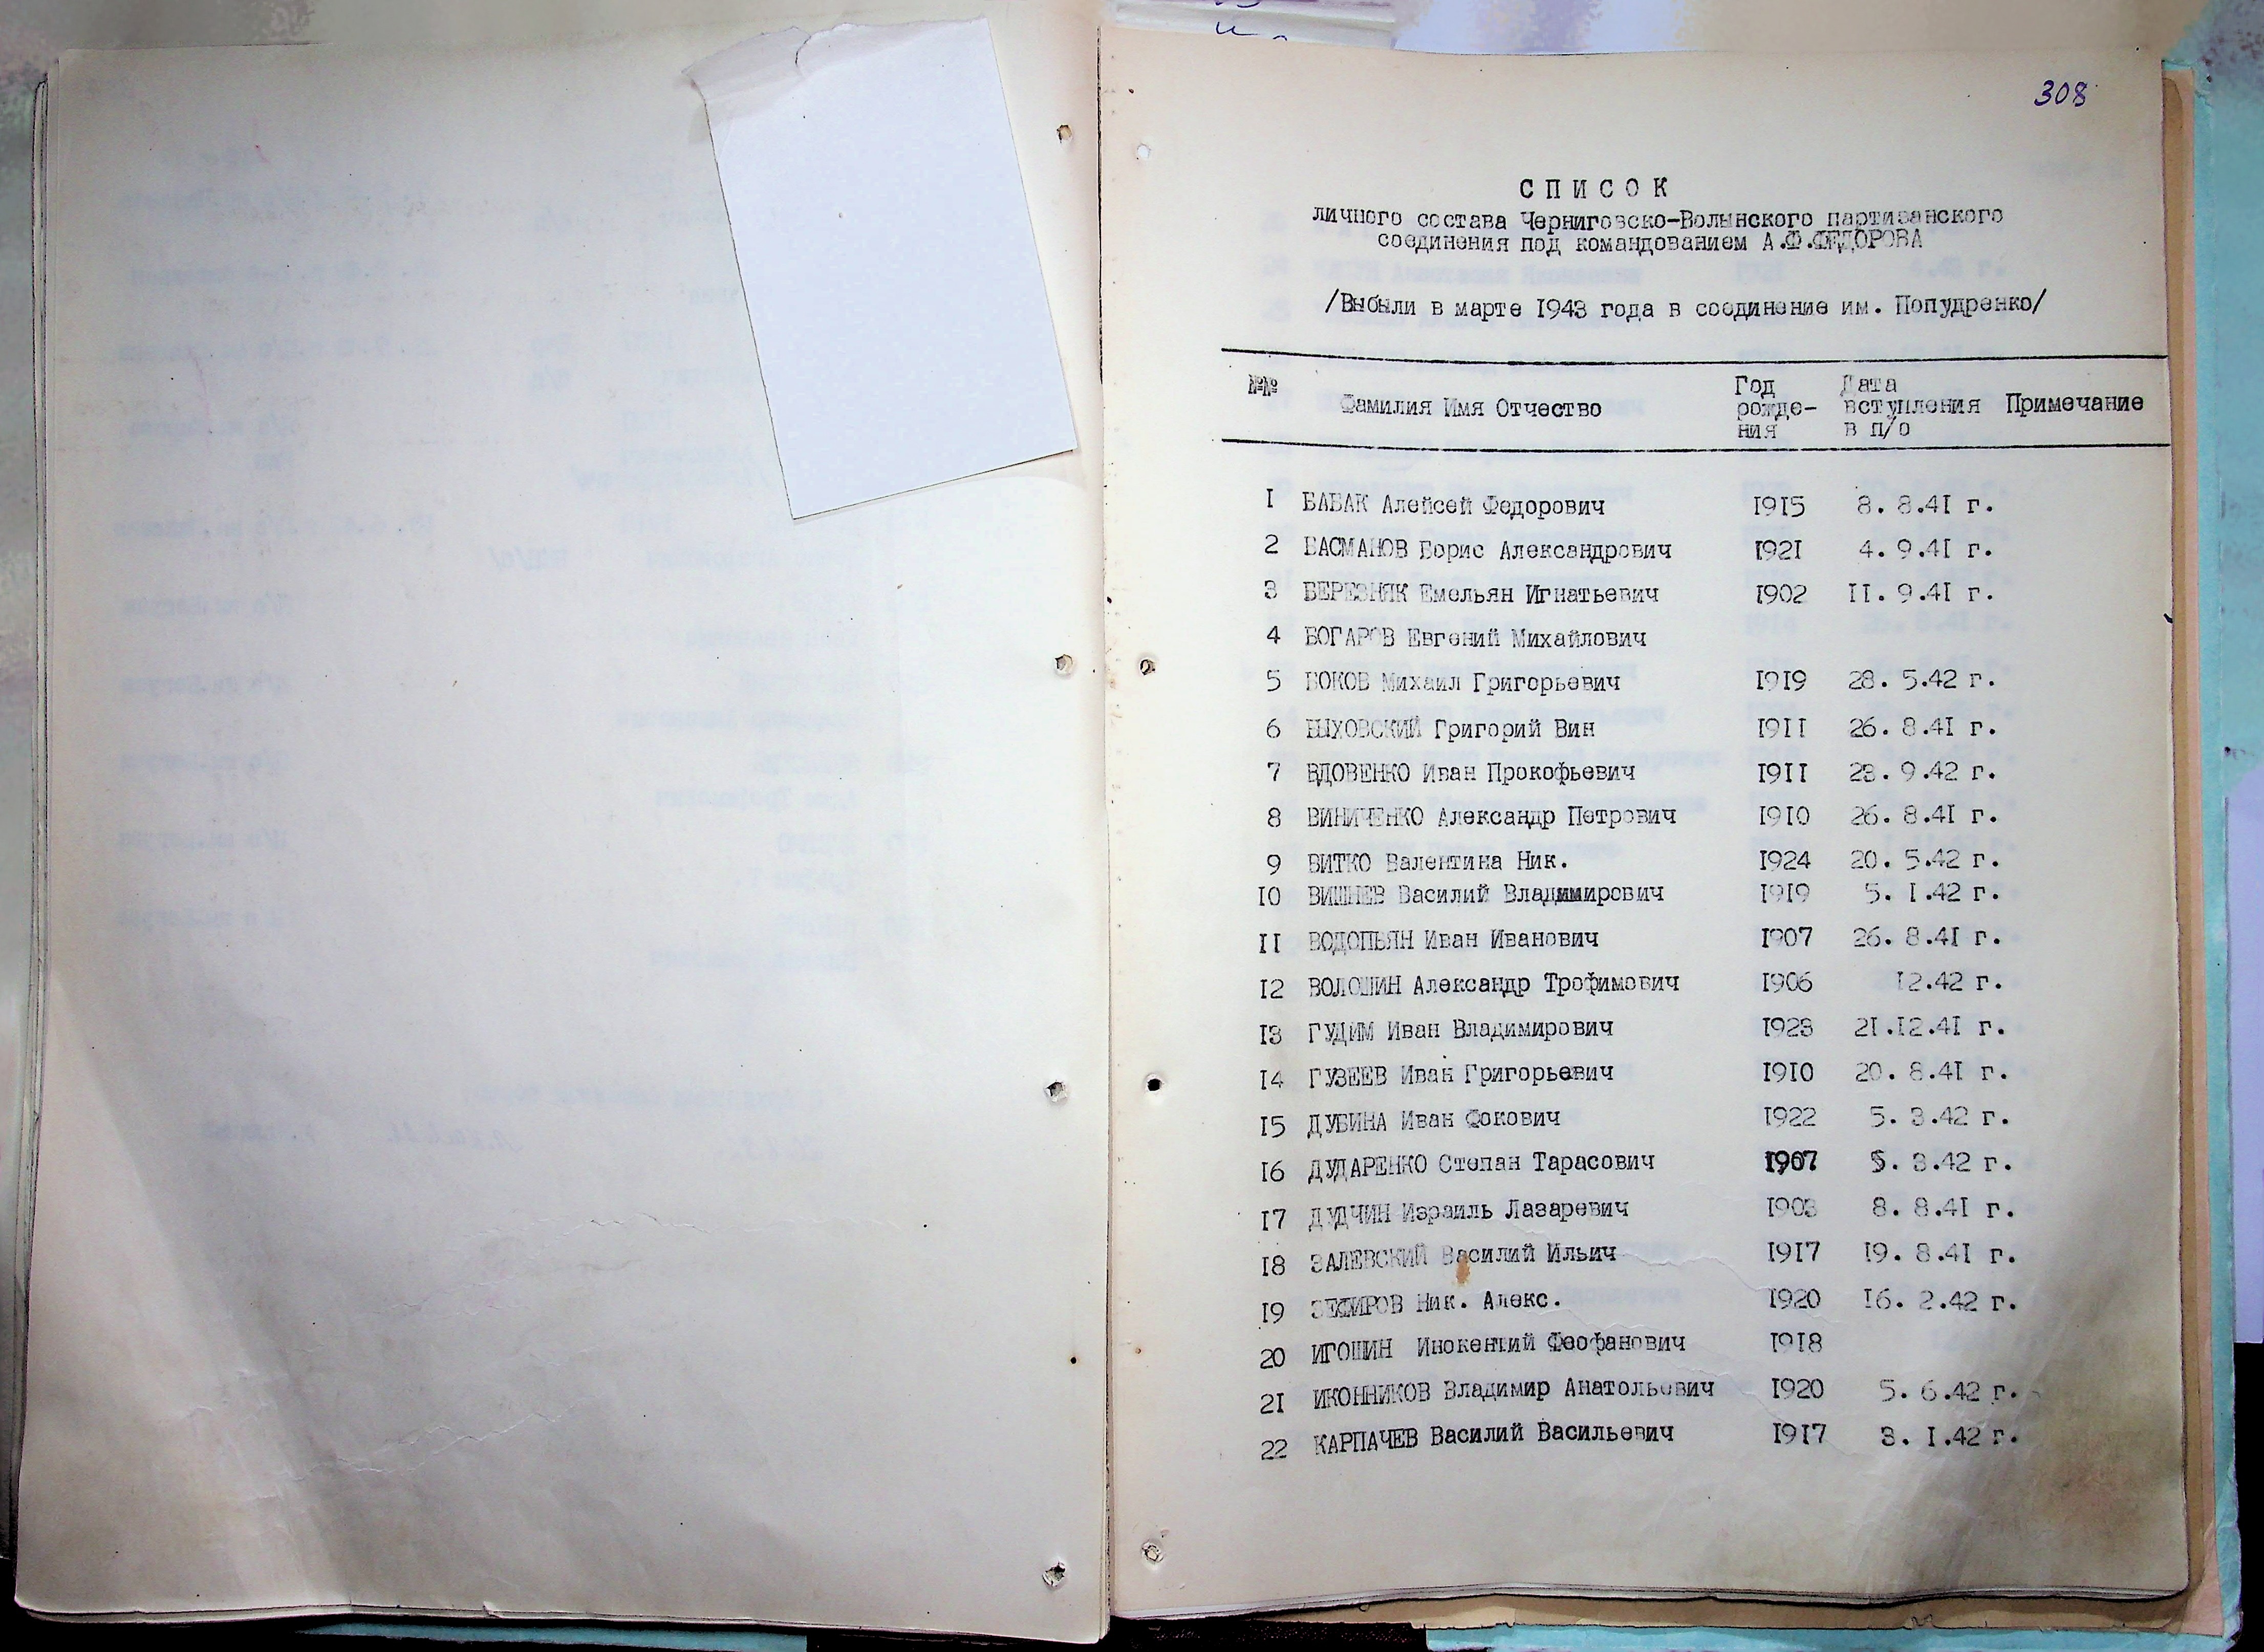 308
СПИСОК
личного состава Черниговско-Волынского партизанского
соединения под командованием А.Ф.ФЕДОРОВА
/Выбыли в марте 1943 года в соединение им. Попудренко/
№№ Фамилия Имя Отчество Год рожде- ния Дата вступления в п/о Примечание
1 БАБАК Алейсей Федорович 1915 8. 8.41 г.
2 БАСМАНОВ Борис Александрович 1921 4. 9.41 г.
3 БЕРЕЗНЯК Емельян Игнатьевич 1902 11. 9.41 г.
4 БОГАРОВ Евгений Михайлович
5 БОКОВ Михаил Григорьевич 1919 28. 5.42 г.
6 БЫХОВСКИЙ Григорий Вин 1911 26. 8.41 г.
7 ВДОВЕНКО Иван Прокофьевич 1911 28. 9.42 г.
8 ВИНИЧЕНКО Александр Петрович 1910 26. 8.41 г.
9 ВИТКО Валентина Ник. 1924 20. 5.42 г.
10 ВИШНЕВ Василий Владимирович 1919 5. 1.42 г.
11 ВОДОПЬЯН Иван Иванович 1907 26. 8.41 г.
12 ВОЛОШИН Александр Трофимович 1906 12.42 г.
13 ГУДИМ Иван Владимирович 1923 21.12.41 г.
14 ГУЗЕЕВ Иван Григорьевич 1910 20. 8.41 г.
15 ДУБИНА Иван Фокович 1922 5. 3.42 г.
16 ДУДАРЕНКО Степан Тарасович 1907 5. 3.42 г.
17 ДУДЧИН Израиль Лазаревич 1903 8. 8.41 г.
18 ЗАЛЕВСКИЙ Василий Ильич 1917 19. 8.41 г.
19 ЗЕФИРОВ Ник. Алекс. 1920 16. 2.42 г.
20 ИГОШИН Инокентий Феофанович 1918
21 ИКОННИКОВ Владимир Анатольевич 1920 5. 6.42 г.
22 КАРПАЧЕВ Василий Васильевич 1917 3. 1.42 г.